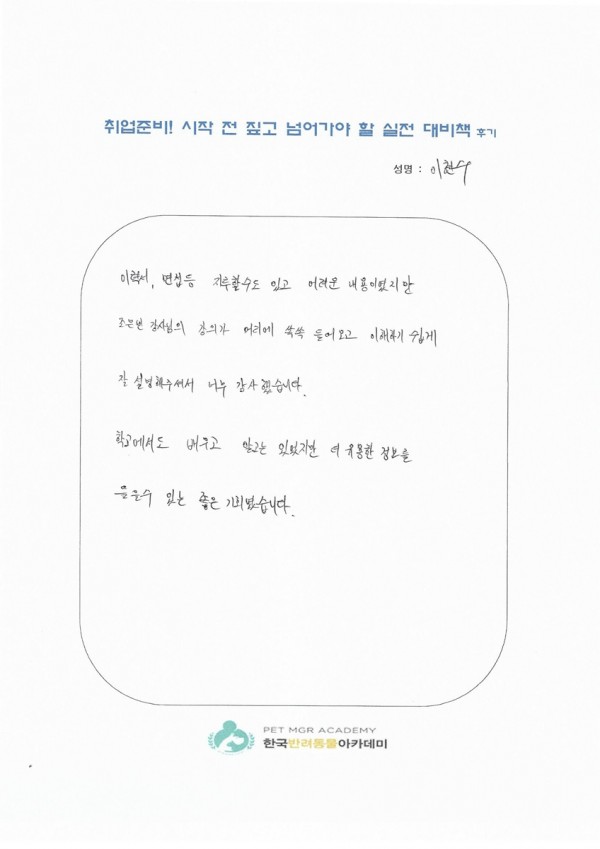 취업준비! 시작 전 짚고 넘어가야 할 실전 대비책 후기
성명 : 이현수
이력서, 면접등 지루할수도 있고 어려운 내용이였지만
강사님의 강의가 머리에 쏙쏙 들어오고 이해하기 쉽게
잘 설명해주셔서 너무 감사했습니다.
학교에서도 배우고 알고는 있었지만 더 유용한 정보를
들을수 있는 좋은 기회였습니다.
PET MGR ACADEMY
한국반려동물아카데미